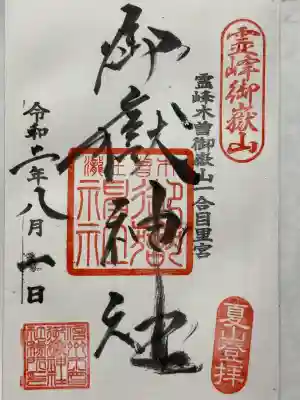 霊峰御嶽山
霊峰木曽御嶽山一合目里宮
御嶽神社
令和二年八月一日
夏山登拝